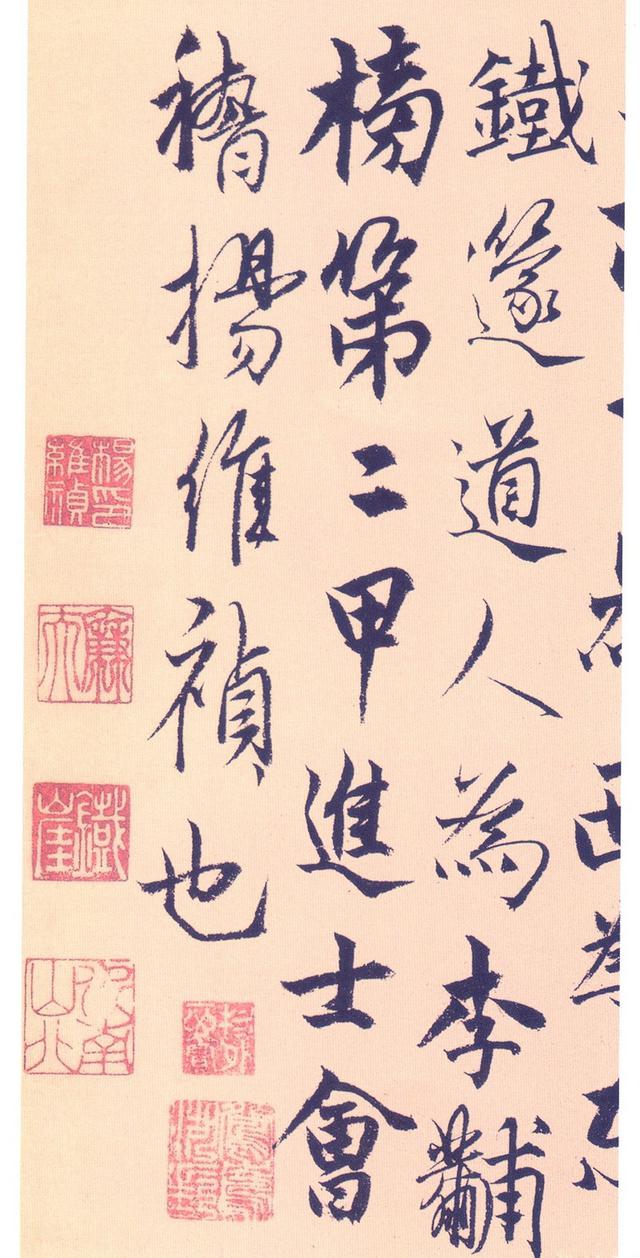 鐵篴道人為李黼
榜第二甲進士會
稽楊維禎也
楊印維禎
廉夫
鐵崖